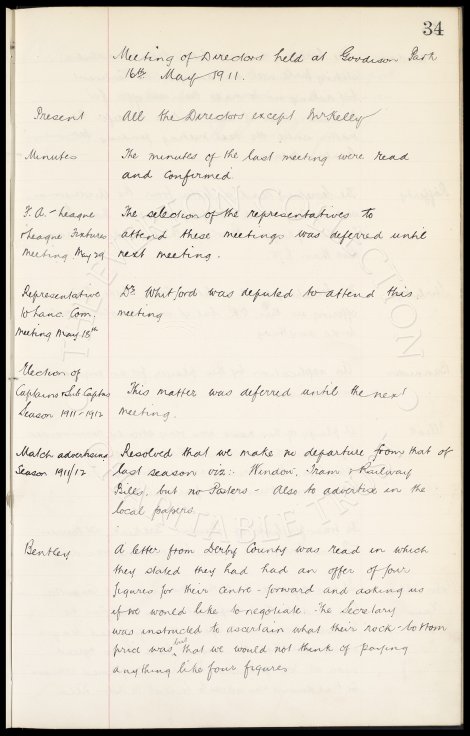 34
Meeting of Directors held at Goodison Park
16th May 1911.
Present All the Directors except Mr Kelly
Minutes The minutes of the last meeting were read
and confirmed
F.A. - League The selection of the representatives to
+ League Fixtures attend these meetings was deferred until
Meeting May 29 next meeting.
Representative Dr Whitford was deputed to attend this
to Lanc. Com. meeting
Meeting May 18th
Election of
Captains + Sub Captns This matter was deferred until the next
Season 1911-1912 meeting.
Match advertising Resolved that we make no departure from that of
Season 1911/12 last season viz:- Window, Tram & Railway
Bills, but no Posters - Also to advertise in the
local papers.
Bentley A letter from Derby County was read in which
they stated they had had an offer of four
figures for their centre-forward and asking us
if we would like to negotiate. The Secretary
was instructed to ascertain what their rock-bottom
price was, but that we would not think of paying
anything like four figures